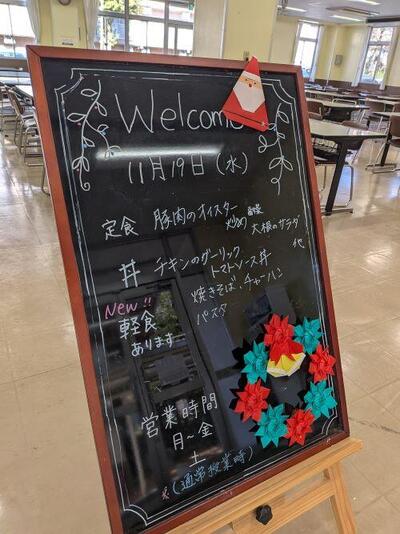 Welcome
11月19日(水)
定食 豚肉のオイスター
炒め 大根のサラダ
他
丼 チキンのガーリック
トマトソース丼
New!! 焼きそば、チャーハン
軽食 パスタ
あります
営業時間
月~金
土
(通常授業時)